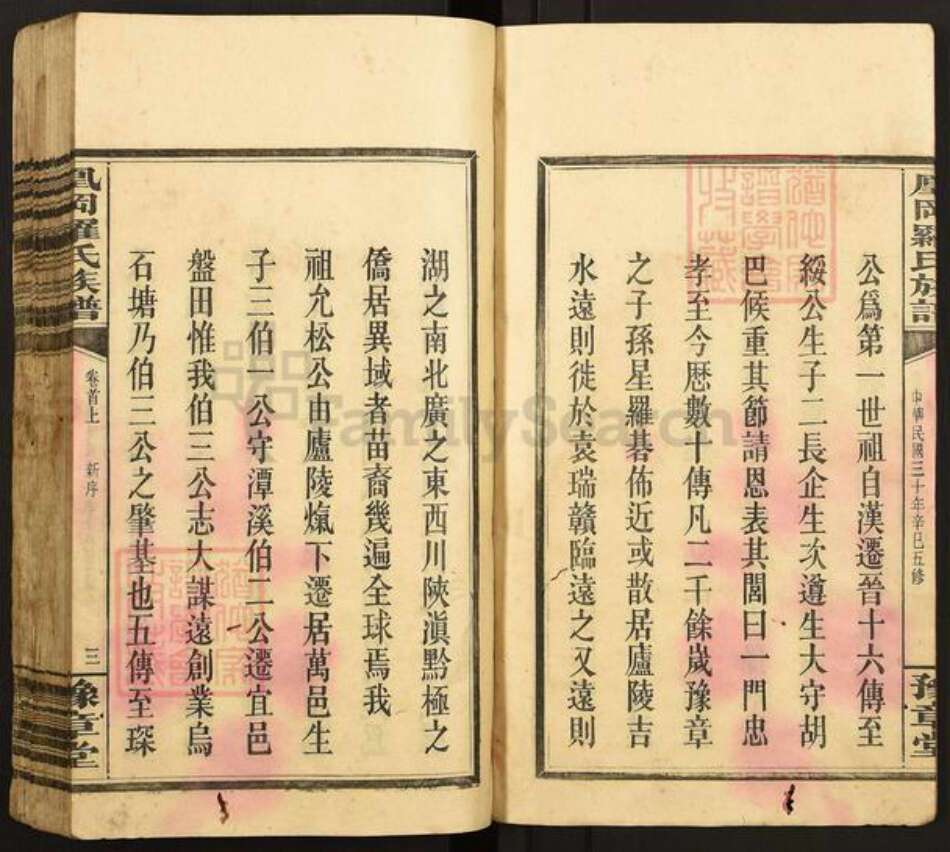 鳳岡羅氏族譜
中華民國三十年辛巳五修
豫章堂
公爲第一世祖自漢遷晉十六傳至
綏公生子二長企生次遵生大守胡
巴候重其節請恩表其閭曰一門忠
孝至今歷數十傳凡二千餘歲豫章
之子孫星羅碁佈近或散居廬陵吉
水遠則徙於袁瑞贛臨遠之又遠則
湖之南北廣之東西川陝滇黔極之
僑居異域者苗裔幾遍全球焉我
祖允松公由廬陵下遷居萬邑生
子三伯一公守潭溪伯二公遷宜邑
盤田惟我伯三公志大謀遠創業烏
石塘乃伯三公之肇基也五傳至琛
鳳岡羅氏族譜
卷首上
新序
三
豫章堂
FamilySearch